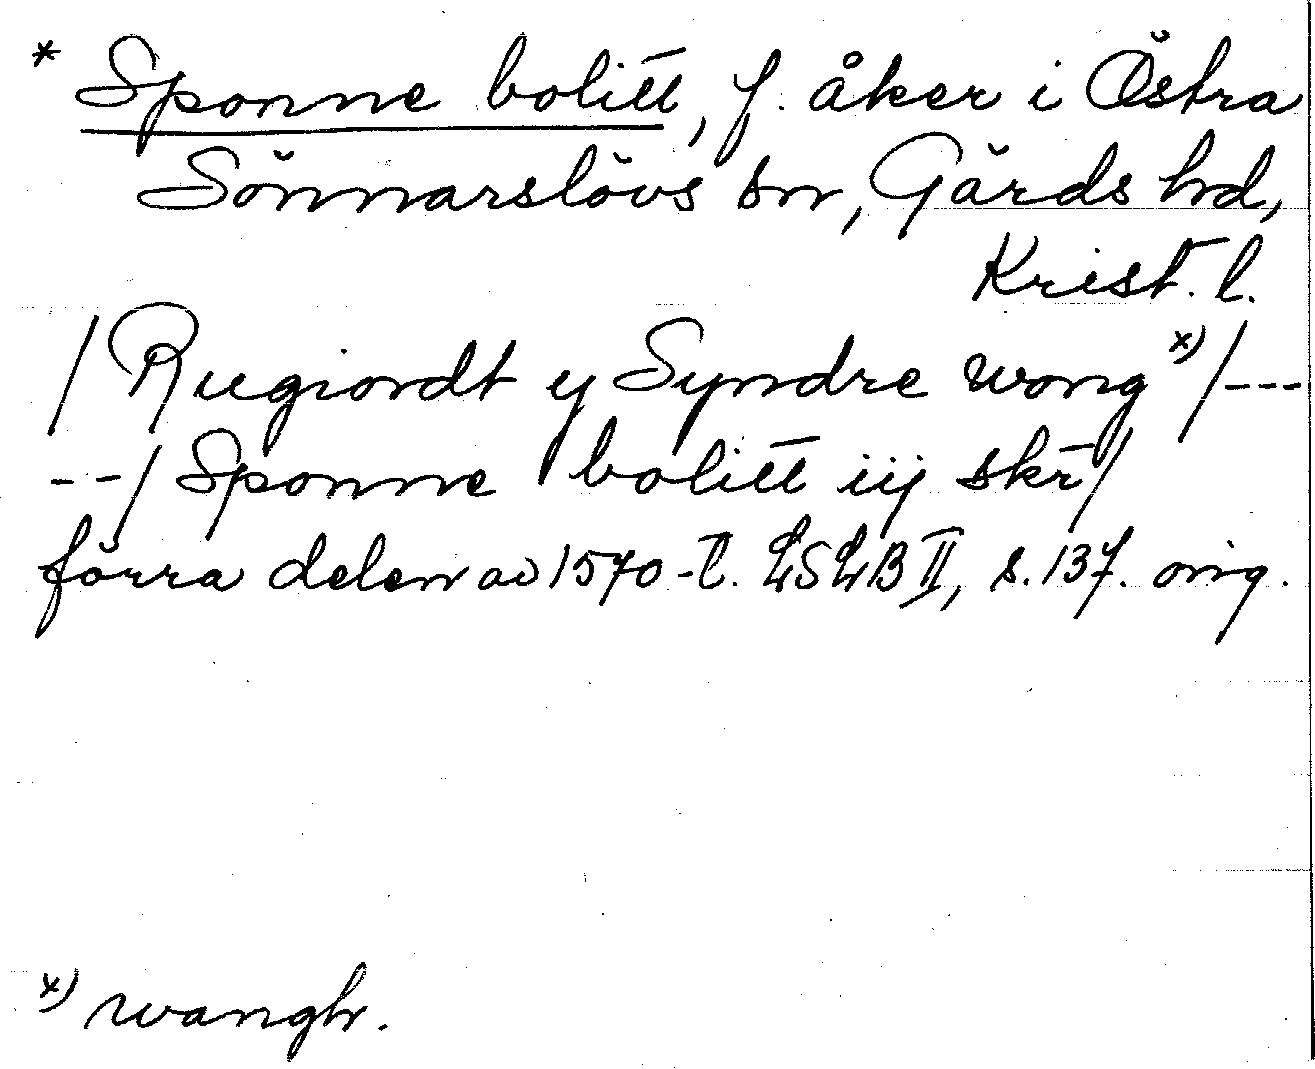 * Sponne bolitt, f. åker i Östra
Sönnarslövs sn, Gärds hd,
Krist. l.
/Rugiordt y Syndre wong x)/---
--/Sponne bolitt iij skr/
förra delen av 1570-t. LSLB II, s. 137. orig.
x) wangh.